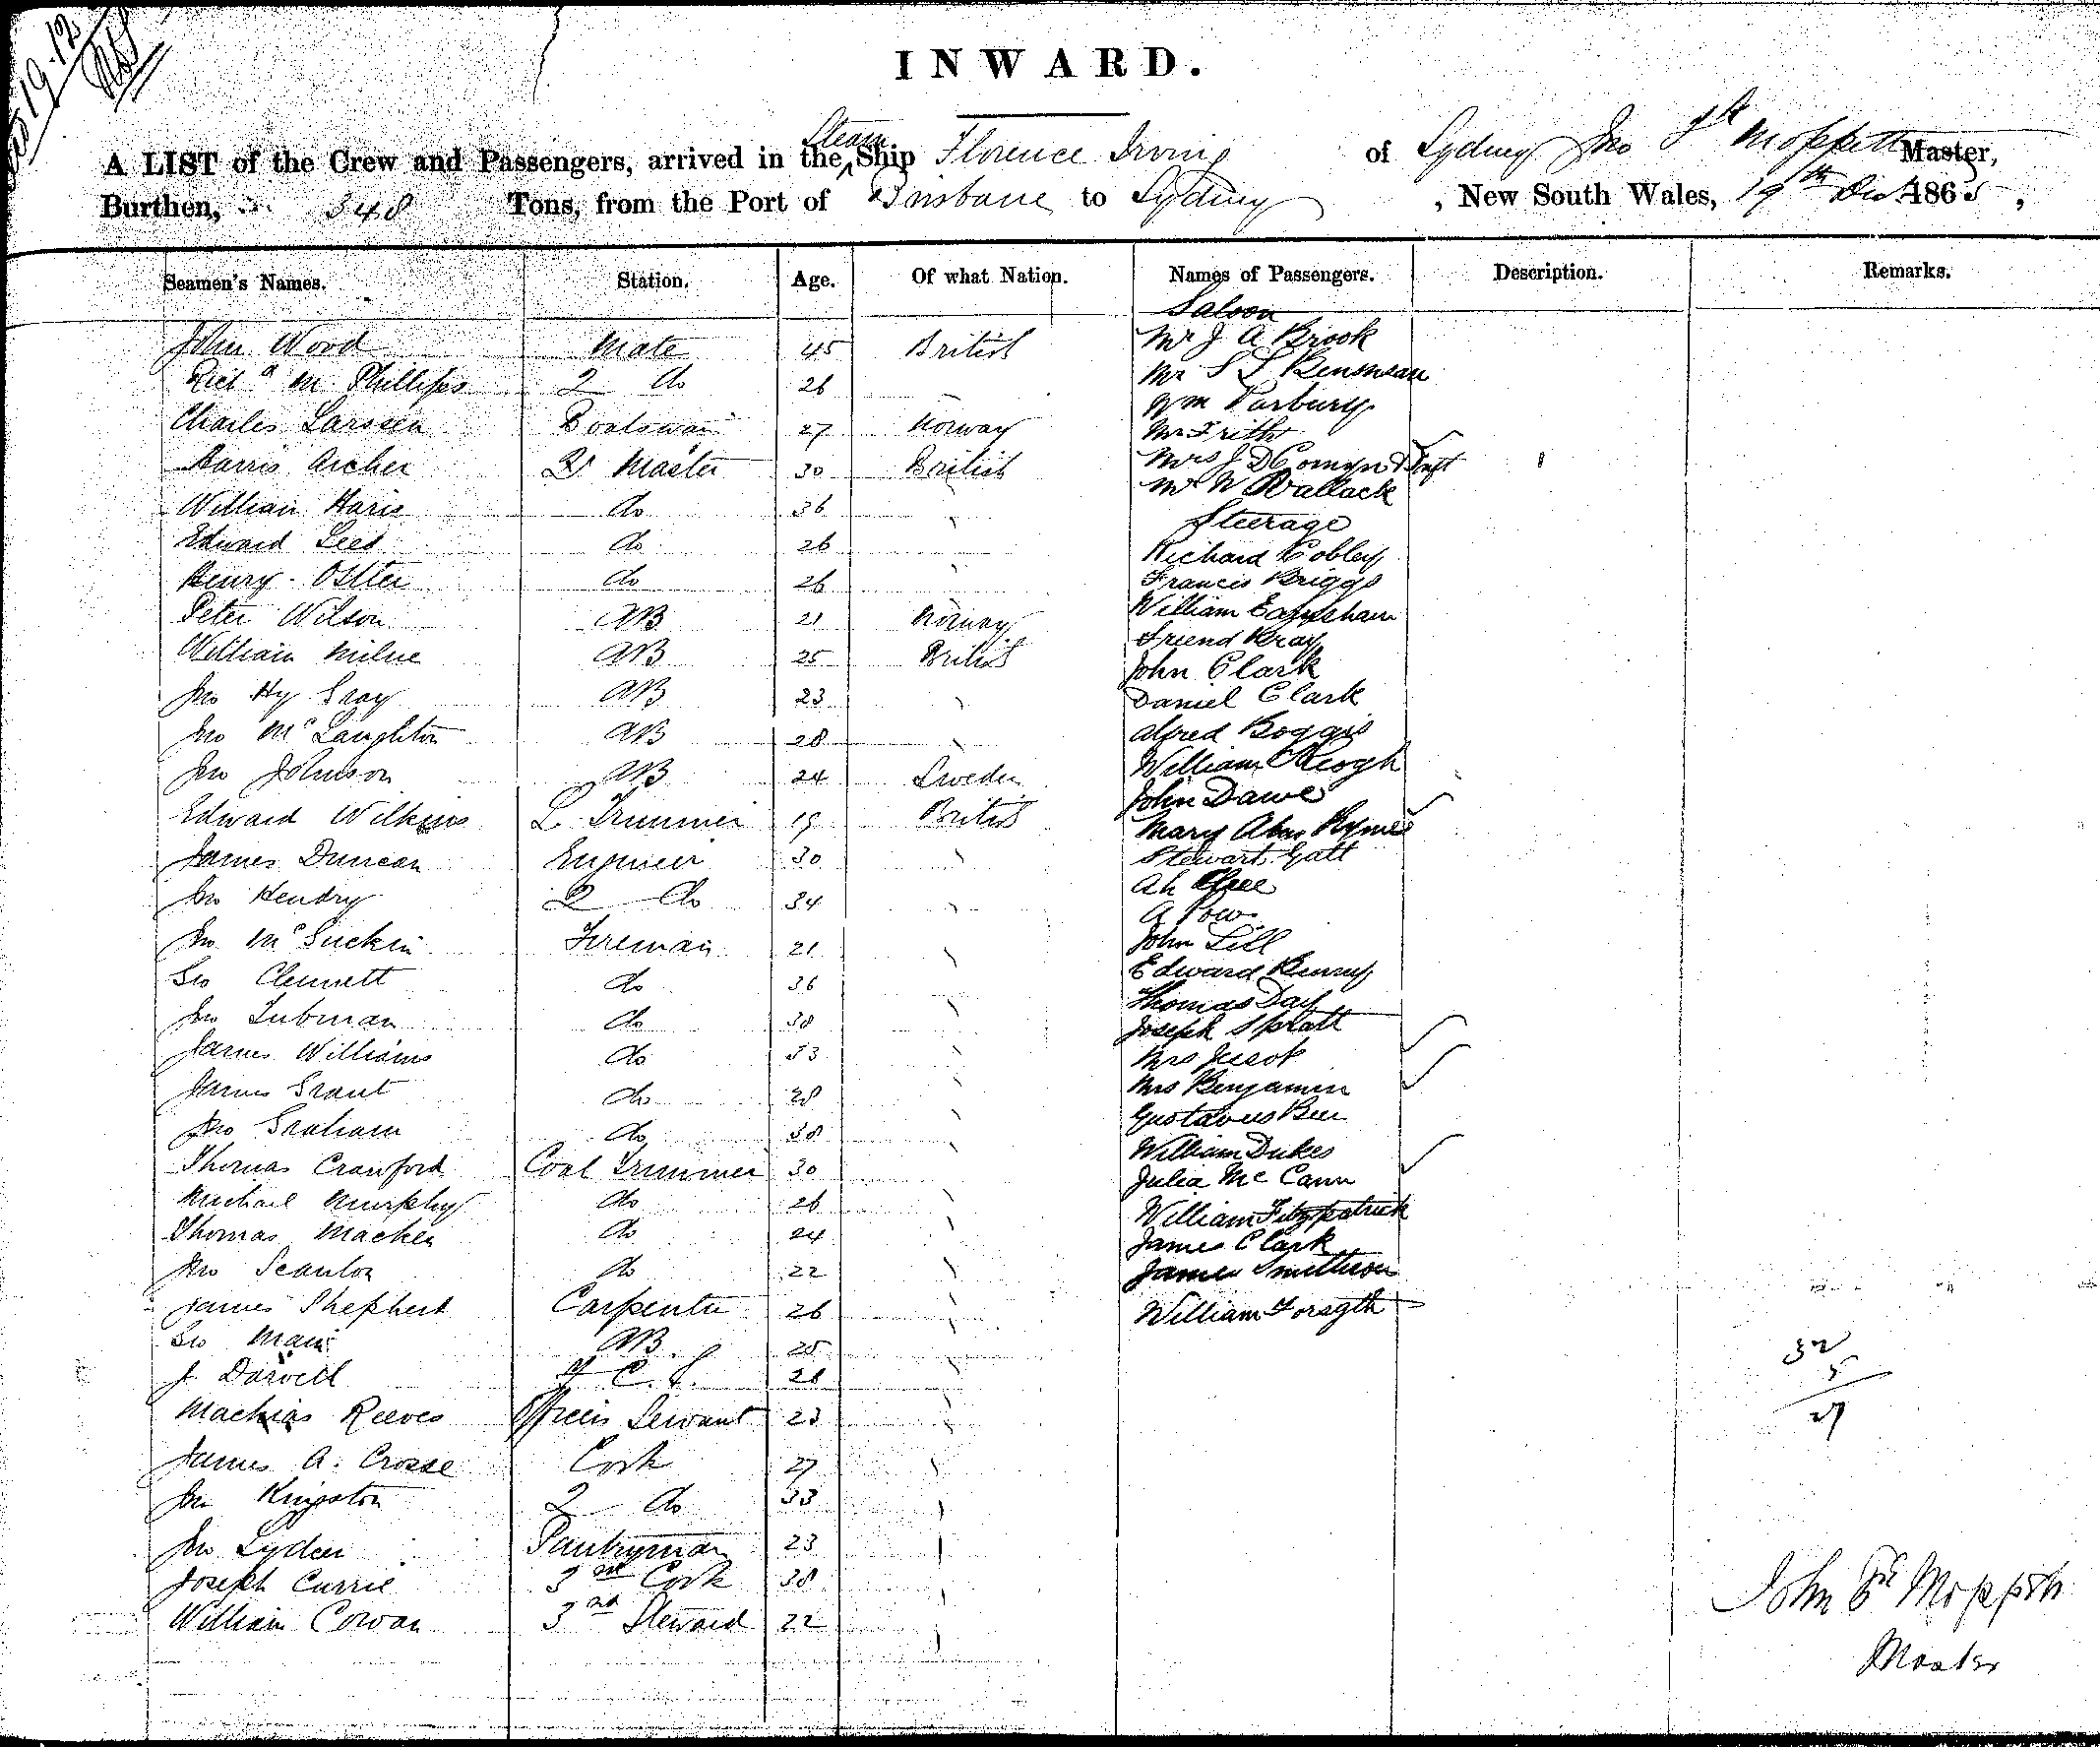 19.12
INWARD.
A LIST of the Crew and Passengers, arrived in the Steam Ship Florence Irving of Sydney Jno Moppett Master,
Burthen, 348 Tons, from the Port of Brisbane to Sydney, New South Wales, 19th Decr 1865,
Seamen's Names. Station. Age. Of what Nation. Names of Passengers. Description. Remarks.
Saloon
John Wood Mate 45 British Mr J A Brook
Richd M Phillips 2 do 26 Mr S S Bensusan
Charles Larssen Boatswain 27 Norway Wm Parbury
Mr Frith
Harris Archer Qr Master 30 British Mrs J D Comyn &
William Haris do 36 Mr W Wallack
Steerage
Edward Lees do 26 Richard Cobley
Henry Ostler do 26 Francis Briggs
Peter Wilson AB 21 Norway William Earnshaw
William Milne AB 25 British Friend Bray
John Clark
Jno Hy Gray AB 23 Daniel Clark
Jno McLaughton AB 28 Alfred Boggis
Jno Johnson AB 24 Sweden William Keogh
John Dawe
Edward Wilkins L. Trimmer 19 British Mary Ann Rymer
James Duncan Engineer 30 Stewart Galt
Jno Hendry 2 do 34 Ah
A Pow
Jno McGuckin Fireman 21 John Lill
Geo Clennett do 36 Edward Henry
Jno Lubman do 38 Thomas Day
Joseph Spratt
James Williams do 33 Mrs
James Grant do 28 Mrs Benjamin
Jno Graham do 38 Gustavus
Thomas Crawford Coal Trimmer 30 William Dukes
Julia McCann
Michael Murphy do 26 William Fitzpatrick
Thomas Macken do 24 James Clark
Jno Scanlon do 22 James Smithson
James Shepherd Carpenter 26 William Forsyth
Geo Main AB 25 32
J. Darvell F.C.S. 28 5
Mathias Reeves Officers Servant 23 27
James A. Crosse Cook 27
Jno Kingston 2 do 33
Jno Lyden Pantryman 23
Joseph Currie 3rd Cook 38
William Cowan 3rd Steward 22
John Moppett
Master